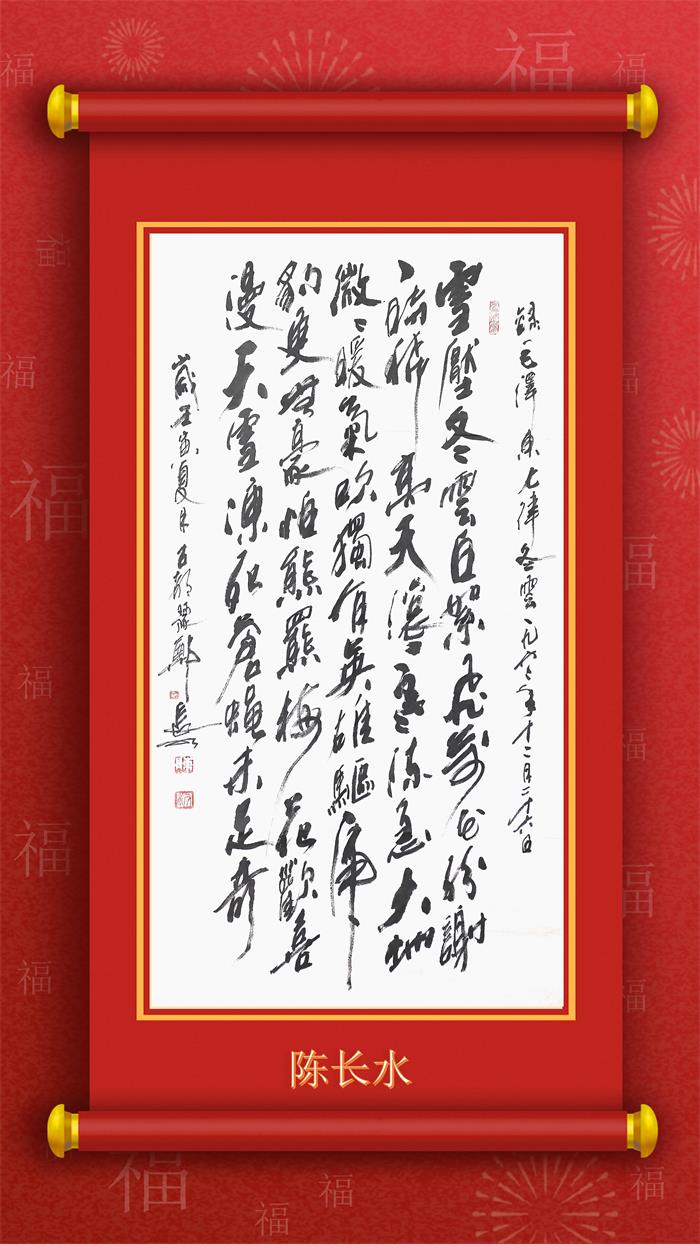 錄毛澤東七律冬雲一九六二年十二月二十六日
雪壓冬雲白絮飛萬花紛謝
一時稀高天滾〻寒流急大地
微〻暖氣吹獨有英雄驅虎
豹更無豪怕熊羆梅花歡喜
漫天雪凍死蒼蠅未足奇
歲壬寅夏月古都豫鄭長水
陈长水